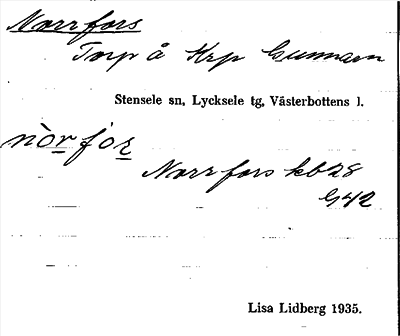 Norrfors
Torp å Krp Gunnarn
Stensele sn, Lycksele tg, Västerbottens l.
nòrfơr
Norrfors kb 28
G42
Lisa Lidberg 1935.